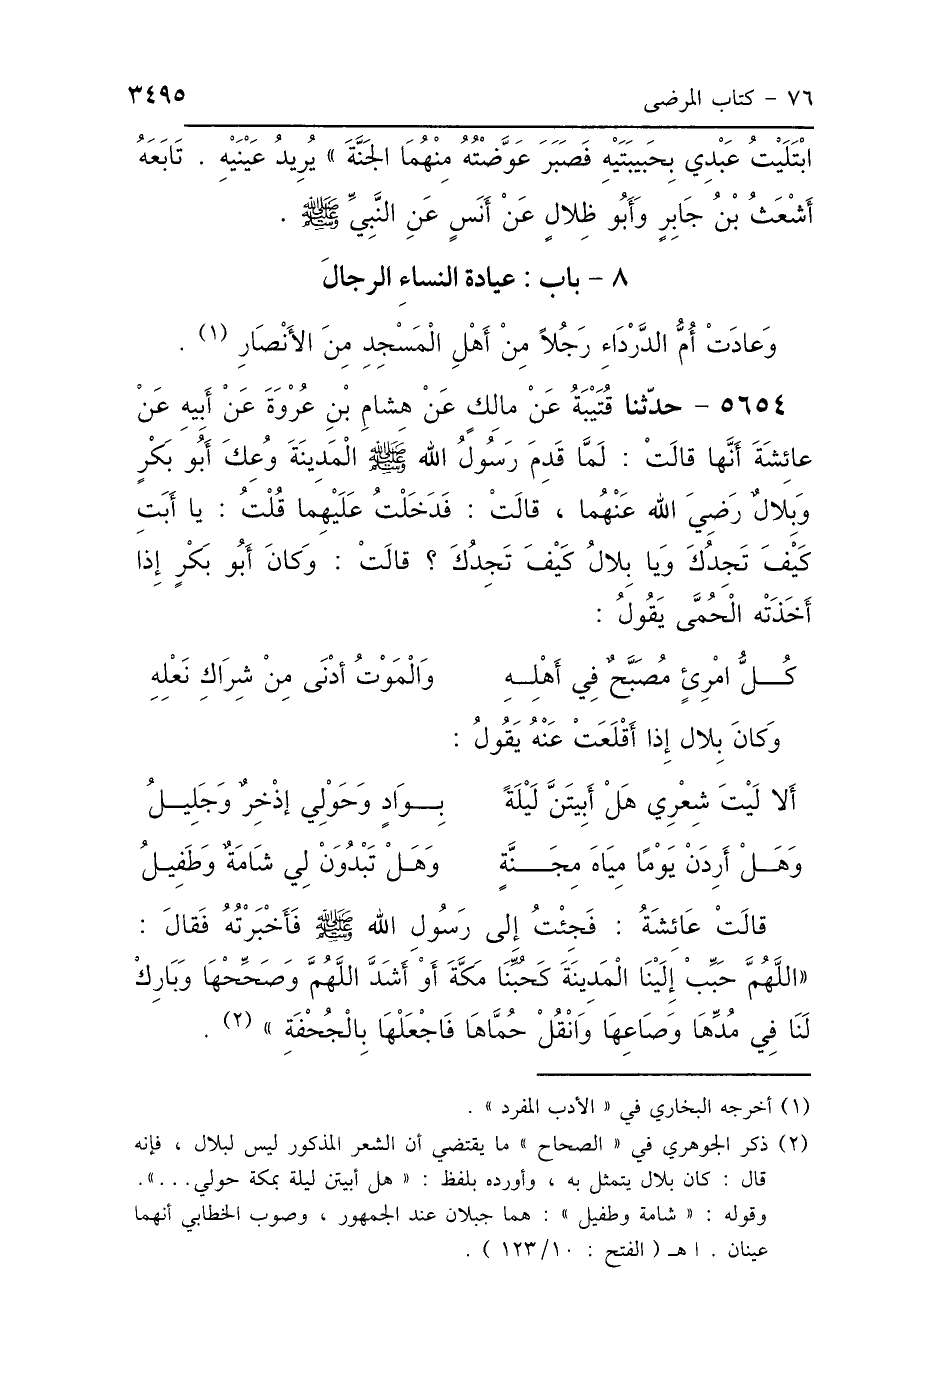 ٧٦ - كتاب المرضى ٣٤٩٥
ابْتَلَيْتُ عَبْدِي بِحَبِيبَتَيْهِ فَصَبَرَ عَوَّضْتُهُ مِنْهُمَا الجَنَّةَ » يُرِيدُ عَيْنَيْهِ . تَابَعَهُ
أَشْعَثُ بْنُ جَابِرٍ وَأَبُو ظِلالٍ عَنْ أَنَسٍ عَنِ النَّبِيِّ ﷺ .
٨ - باب : عيادة النساءِ الرجالَ
وَعادَتْ أُمُّ الدَّرْدَاءِ رَجُلاً مِنْ أَهْلِ الْمَسْجِدِ مِنَ الأَنْصَارِ (١) .
٥٦٥٤ - حدّثنا قُتَيْبَةُ عَنْ مالِكٍ عَنْ هِشامِ بْنِ عُرْوَةَ عَنْ أَبِيهِ عَنْ
عائِشَةَ أَنَّها قالَتْ : لَمَّا قَدِمَ رَسُولُ الله ﷺ الْمَدِينَةَ وُعِكَ أَبُو بَكْرٍ
وَبِلالٌ رَضِيَ الله عَنْهُما ، قالَتْ : فَدَخَلْتُ عَلَيْهِما قُلْتُ : يا أَبَتِ
كَيْفَ تَجِدُكَ وَيا بِلالُ كَيْفَ تَجِدُكَ ؟ قالَتْ : وَكانَ أَبُو بَكْرٍ إذا
أَخَذَتْه الْحُمَّى يَقُولُ :
كُـــلُّ امْرِئٍ مُصَبَّحٌ فِي أَهْلِـــهِ وَالْمَوْتُ أدْنَى مِنْ شِرَاكِ نَعْلِهِ
وَكانَ بِلال إذا أَقْلَعَتْ عَنْهُ يَقُولُ :
أَلا لَيْتَ شِعْرِي هَلْ أَبِيتَنَّ لَيْلَةً بِـــوَادٍ وَحَوْلِي إذْخِرٌ وَجَلِيـــلُ
وَهَـــلْ أَرِدَنْ يَوْمًا مِيَاهَ مِجَـــنَّةٍ وَهَـــلْ تَبْدُوَنْ لِي شَامَةٌ وَطَفِيـــلُ
قالَتْ عَائِشَةُ : فَجِئْتُ إلى رَسُولِ الله ﷺ فَأَخْبَرْتُهُ فَقالَ :
«اللَّهُمَّ حَبِّبْ إلَيْنَا الْمَدِينَةَ كَحُبِّنَا مَكَّةَ أَوْ أَشَدَّ اللَّهُمَّ وَصَحِّحْهَا وَبَارِكْ
لَنَا فِي مُدِّهَا وَصَاعِهَا وَانْقُلْ حُمَّاهَا فَاجْعَلْهَا بِالْجُحْفَةِ » (٢) .
(١) أخرجه البخاري في « الأدب المفرد » .
(٢) ذكر الجوهري في « الصحاح » ما يقتضي أن الشعر المذكور ليس لبلال ، فإنه
قال : كان بلال يتمثل به ، وأورده بلفظ : « هل أبيتن ليلة بمكة حولي...».
وقوله : « شامة وطفيل » : هما جبلان عند الجمهور ، وصوب الخطابي أنهما
عينان . ا هـ ( الفتح : ١٠/ ١٢٣ ) .